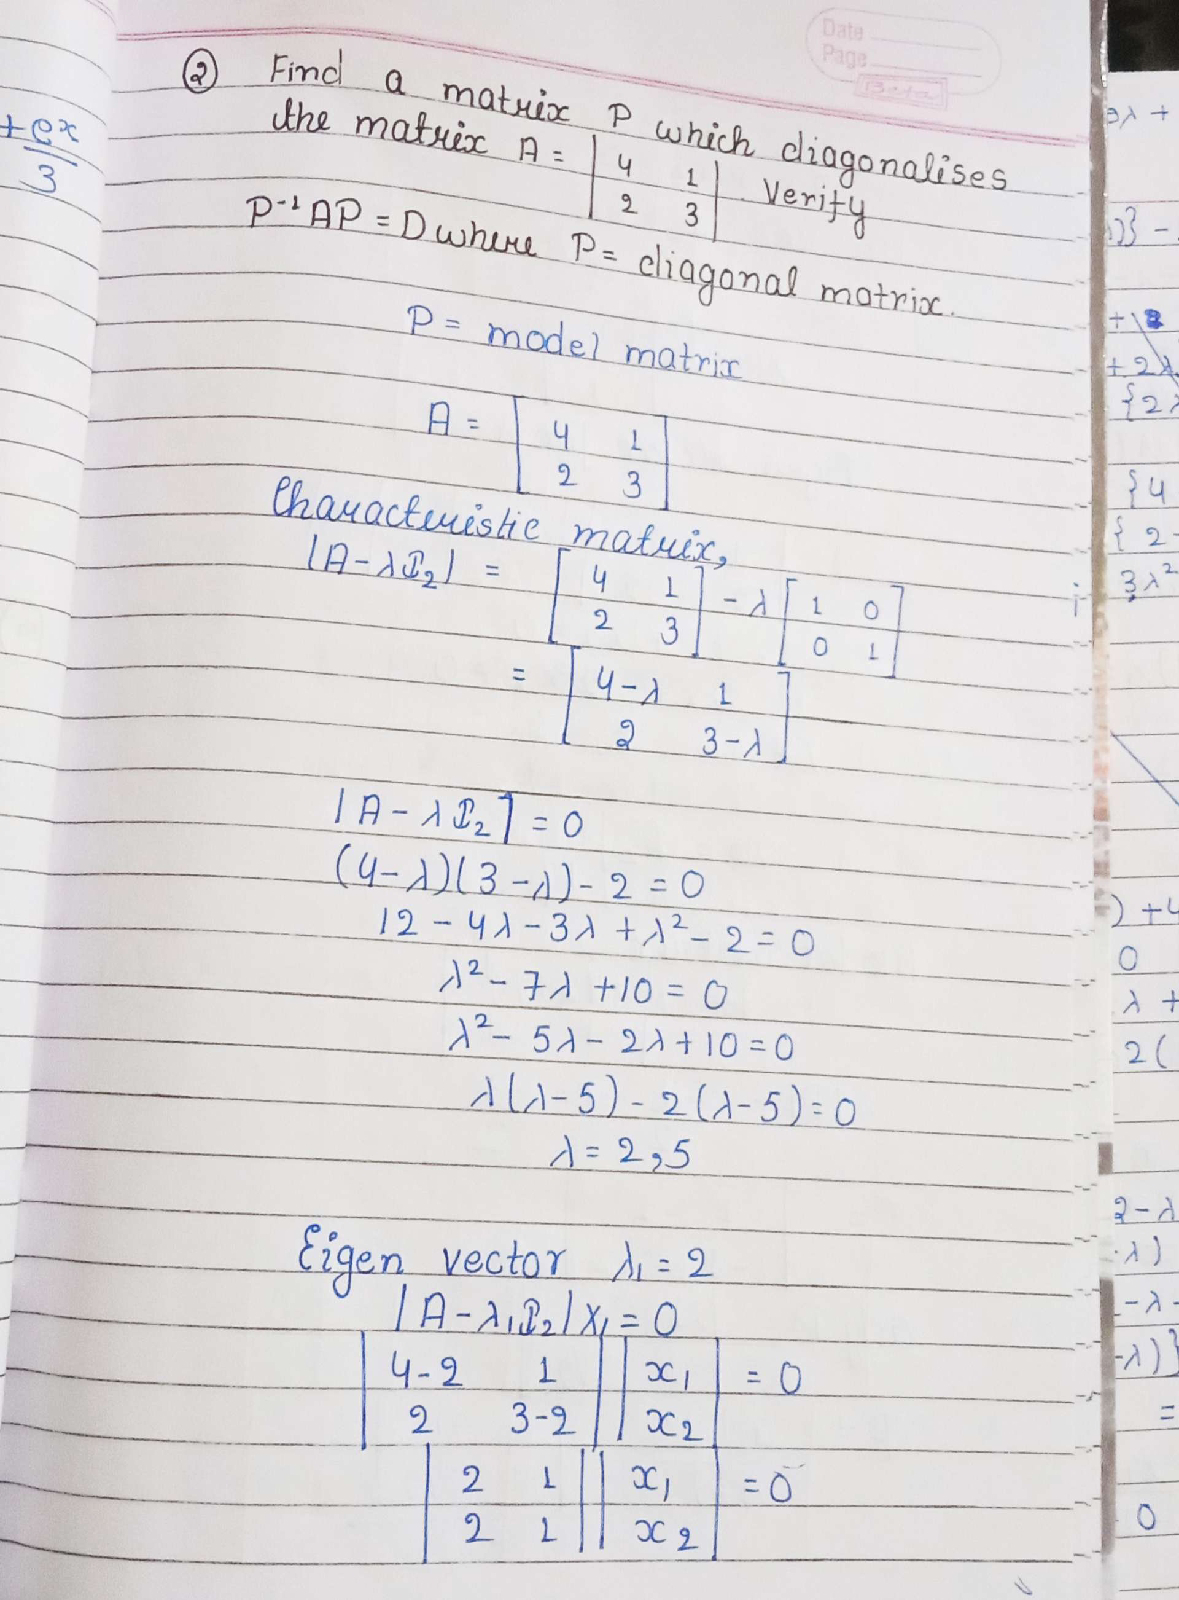 Date
Page
② Find a matrix P which diagonalises
the matrix A = | 4 1 | Verify
| 2 3 |
P⁻¹AP = D where P = diagonal matrix.
P = model matrix
A = [ 4 1 ]
[ 2 3 ]
Characteristic matrix,
|A-λI₂| = [ 4 1 ] - λ [ 1 0 ]
[ 2 3 ] [ 0 1 ]
= [ 4-λ 1 ]
[ 2 3-λ ]
|A-λI₂] = 0
(4-λ)(3-λ)-2 = 0
12 - 4λ - 3λ + λ² - 2 = 0
λ² - 7λ + 10 = 0
λ² - 5λ - 2λ + 10 = 0
λ(λ-5) - 2(λ-5) = 0
λ = 2, 5
Eigen vector λ₁ = 2
|A-λ₁I₂|X₁ = 0
| 4-2 1 | | x₁ | = 0
| 2 3-2 | | x₂ |
| 2 1 | | x₁ | = 0
| 2 1 | | x₂ |
+ex
3
+2λ
{2λ
{4
{2-
3λ²
) +4
0
λ +
2(
2-λ
-λ)
-λ-
-λ)}
=
0